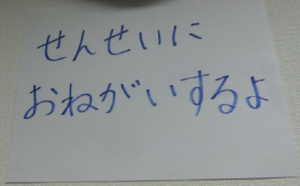 せんせいに
おねがいするよ